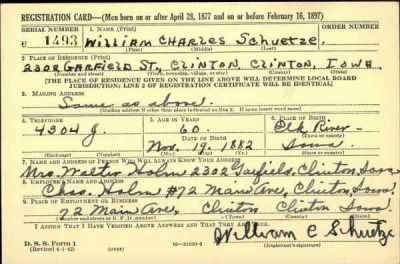 REGISTRATION CARD—(Men born on or after April 28, 1877 and on or before February 16, 1897)
SERIAL NUMBER 1. NAME (Print) ORDER NUMBER
U 1493 William Charles Schuetze
(First) (Middle) (Last)
2. PLACE OF RESIDENCE (Print)
2302 GARFIELD ST, CLINTON CLINTON, IOWA
(Number and street) (Town, township, village, or city) (County) (State)
[THE PLACE OF RESIDENCE GIVEN ON THE LINE ABOVE WILL DETERMINE LOCAL BOARD
JURISDICTION; LINE 2 OF REGISTRATION CERTIFICATE WILL BE IDENTICAL]
3. MAILING ADDRESS
Same as above.
[Mailing address if other than place indicated on line 2. If same insert word same]
4. TELEPHONE 5. AGE IN YEARS 6. PLACE OF BIRTH
4304 J. 60. Elk River
DATE OF BIRTH (Town or county)
Nov. 19. 1882 Iowa
(Exchange) (Number) (Mo.) (Day) (Yr.) (State or country)
7. NAME AND ADDRESS OF PERSON WHO WILL ALWAYS KNOW YOUR ADDRESS
Mrs. Walter Holm 2302 Garfield, Clinton, Iowa
8. EMPLOYER'S NAME AND ADDRESS
Chas. Holm #72 Main Ave, Clinton Iowa.
9. PLACE OF EMPLOYMENT OR BUSINESS
72 Main Ave, Clinton Clinton Iowa.
(Number and street or R. F. D. number) (Town) (County) (State)
I AFFIRM THAT I HAVE VERIFIED ABOVE ANSWERS AND THAT THEY ARE TRUE.
D. S. S. Form 1
(Revised 4-1-42) (over) William C Schuetze
(Registrant's signature)